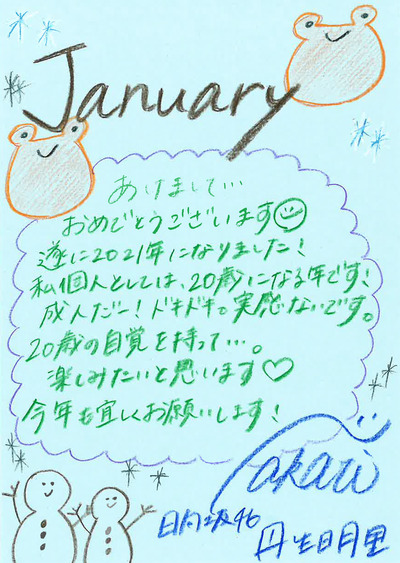 January
あけまして…
おめでとうございます
遂に2021年になりました!
私個人としては、20歳になる年です!
成人だー!ドキドキ。実感ないです。
20歳の自覚を持って…。
楽しみたいと思います♡
今年も宜しくお願いします!
akari
日向坂46
丹生明里